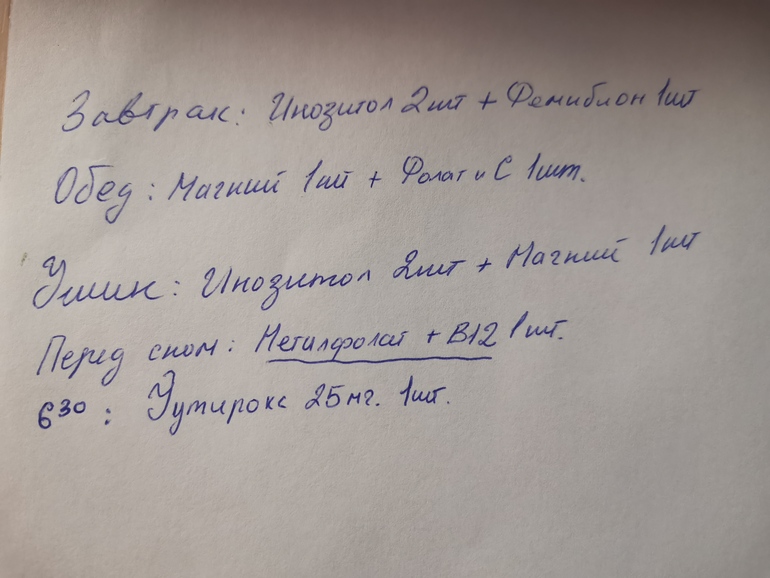 Завтрак: Инозитол 2шт + Фемиблон 1шт
Обед: Магний 1шт + Фолат и С 1шт.
Ужин: Инозитол 2шт + Магний 1шт
Перед сном: Металфолат + В12 1шт.
6³⁰: Эутирокс 25мг. 1шт.